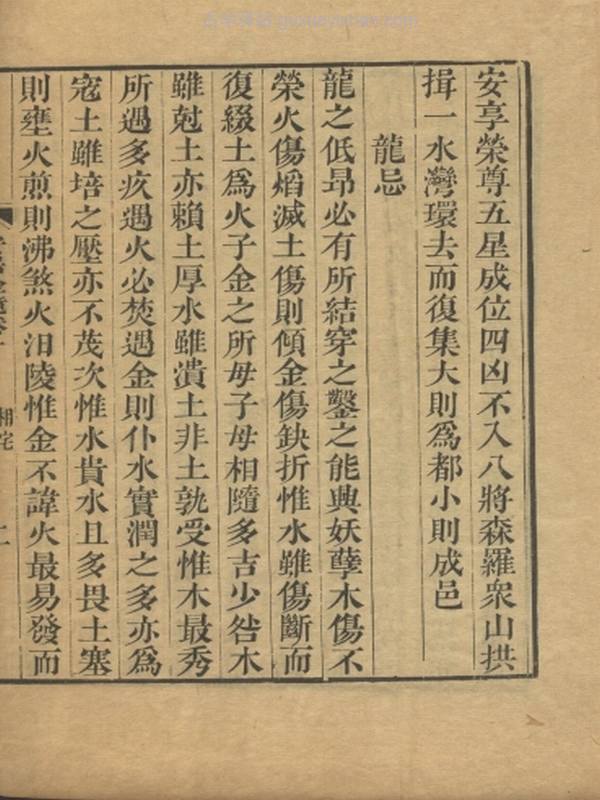 安享榮尊五星成位四凶不入八將森羅衆山拱
揖一水灣環去而復集大則爲都小則成邑
龍忌
龍之低昂必有所結穿之鑿之能興妖孽木傷不
榮火傷熖滅土傷則傾金傷缺折惟水雖傷斷而
復綴土爲火子金之所母子母相隨多吉少咎木
雖尅土亦賴土厚水雖潰土非土孰受惟木最秀
所遇多疚遇火必焚遇金則仆水實潤之多亦爲
寇土雖培之壓亦不茂次惟水貴水且多畏土塞
則壅火煎則沸煞火汨陵惟金不諱火最易發而
相宅